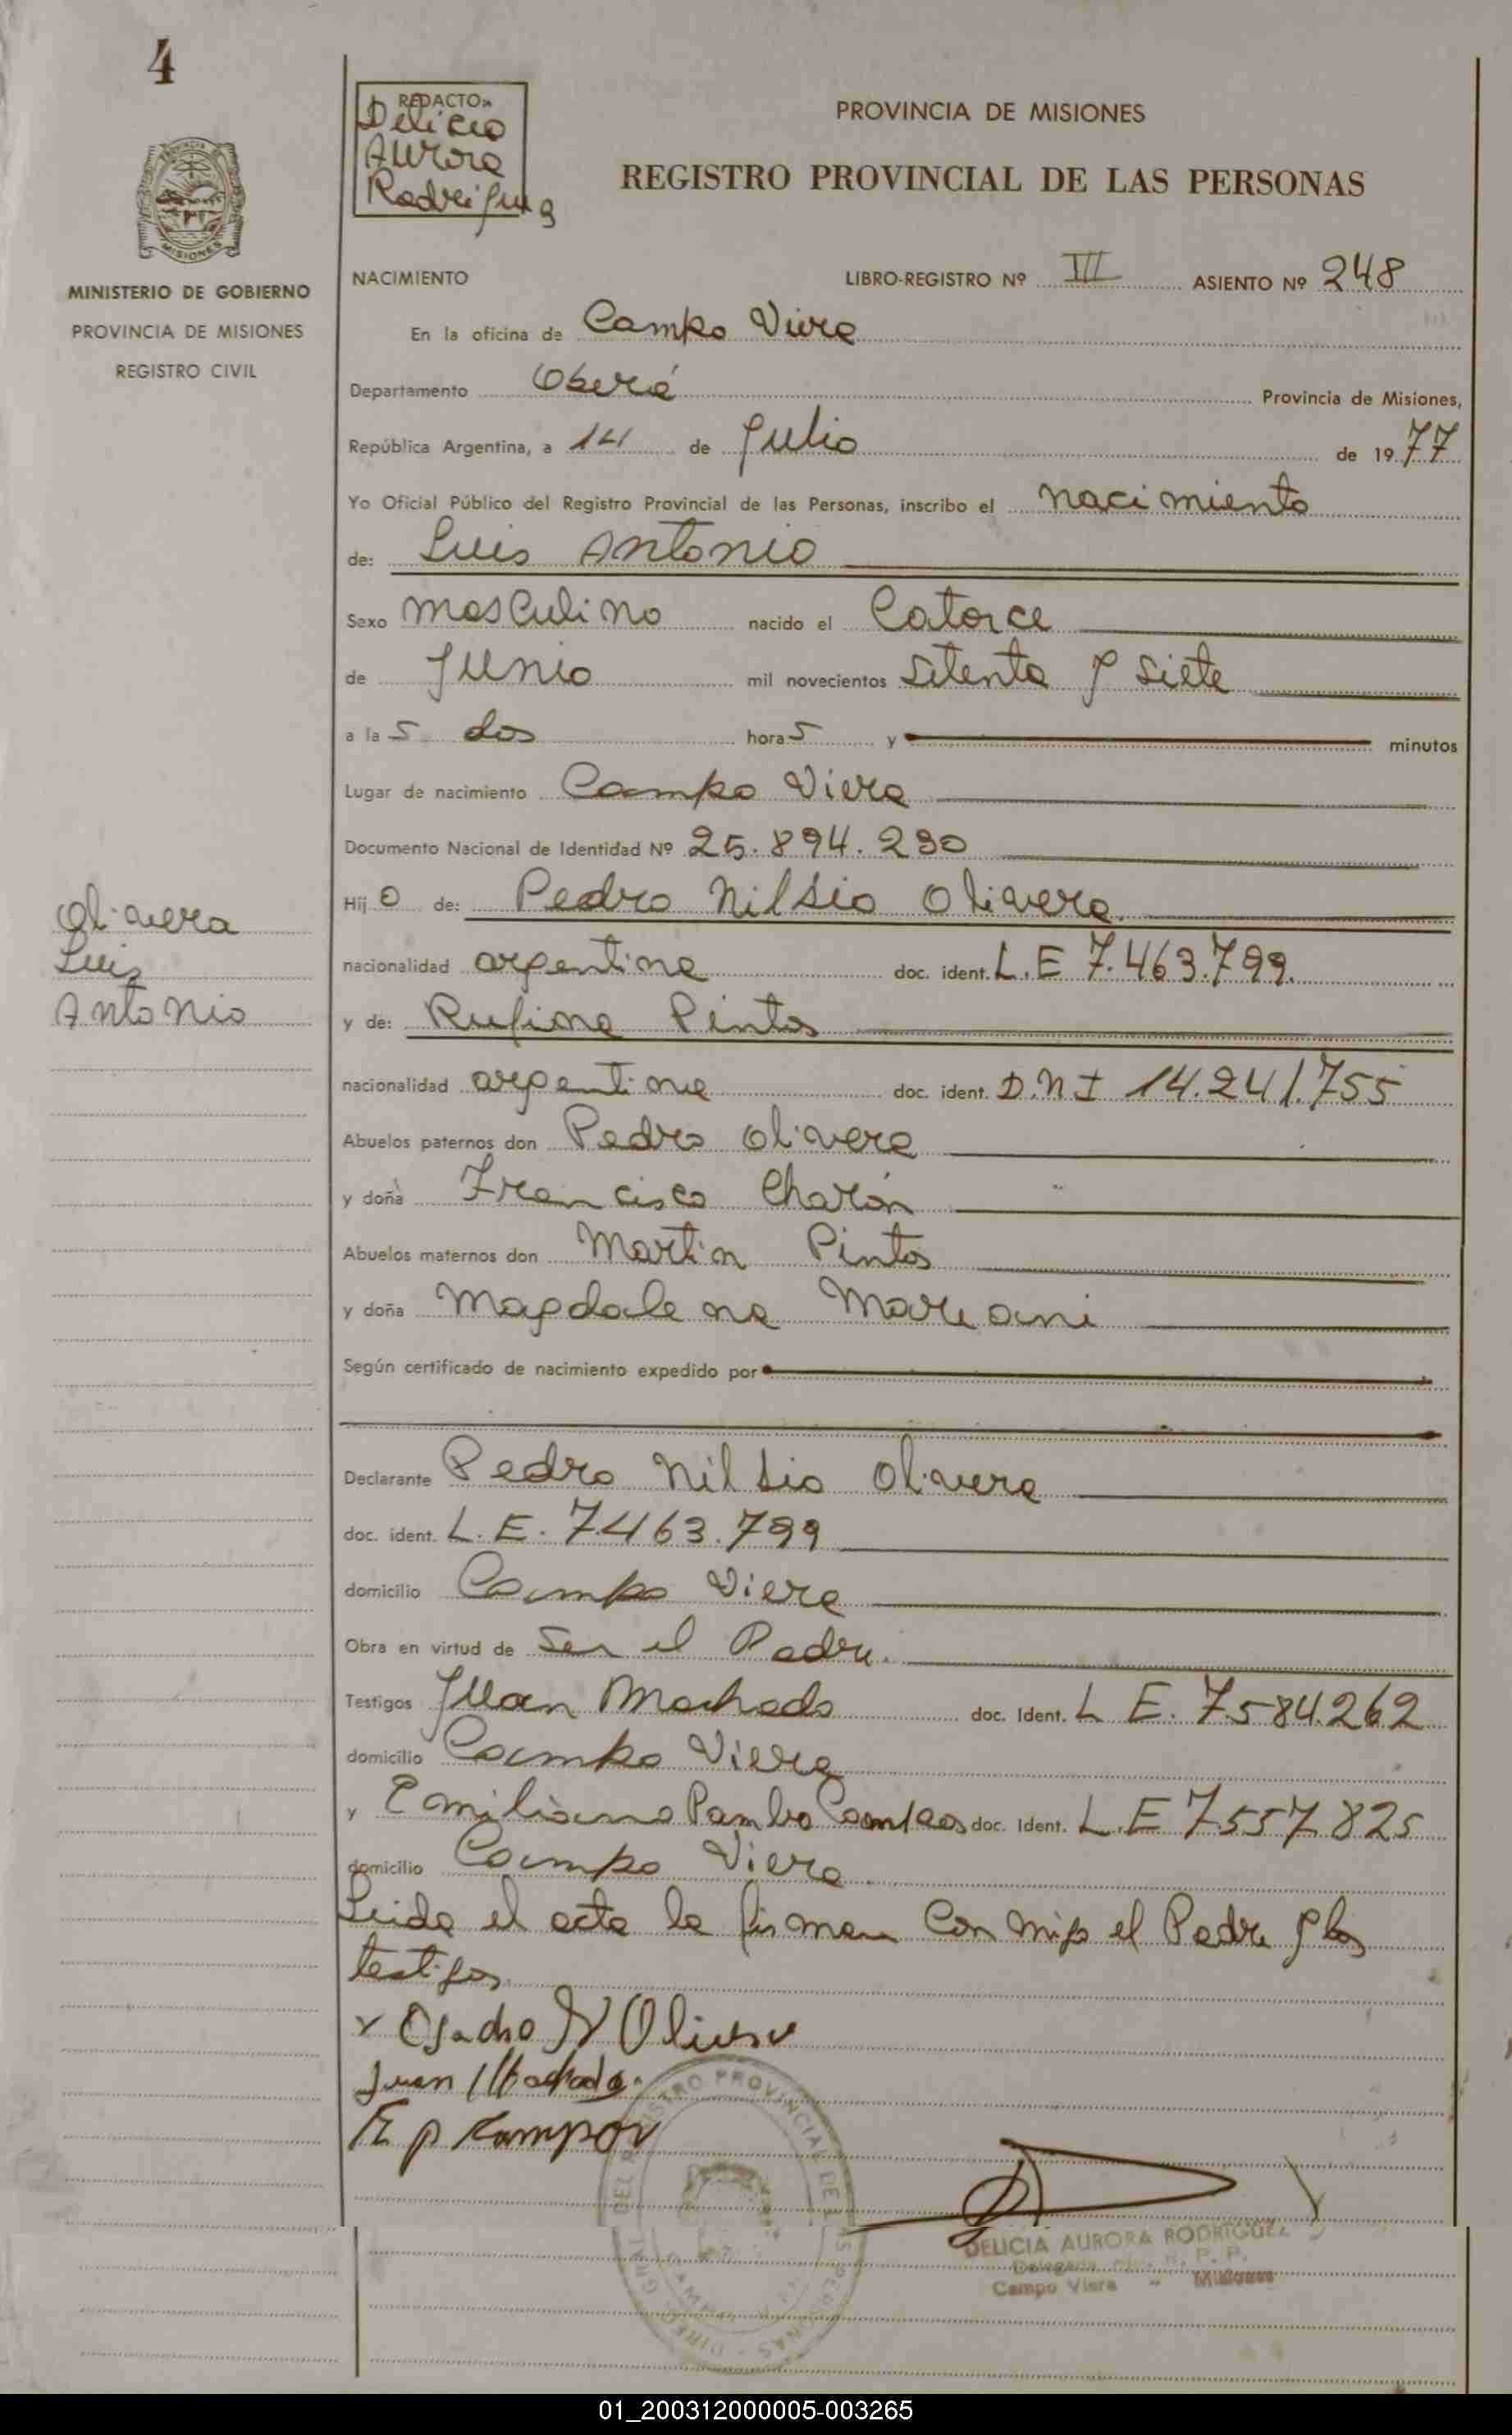 4
REDACTOR
Delicia
Aurora
Rodriguez
PROVINCIA DE MISIONES
REGISTRO PROVINCIAL DE LAS PERSONAS
MISIONES
MINISTERIO DE GOBIERNO
PROVINCIA DE MISIONES
REGISTRO CIVIL
NACIMIENTO LIBRO-REGISTRO Nº III ASIENTO Nº 248
En la oficina de Campo Viera
Departamento Oberá Provincia de Misiones,
República Argentina, a 14 de Julio de 1977
Yo Oficial Público del Registro Provincial de las Personas, inscribo el nacimiento
de: Luis Antonio
Sexo masculino nacido el Catorce
de Junio mil novecientos Setenta y Siete
a las dos horas y minutos
Lugar de nacimiento Campo Viera
Documento Nacional de Identidad Nº 25.894.230
Hijo de: Pedro Nilsio Olivera
Olivera
Luis
Antonio
nacionalidad argentina doc. ident. L.E 7.463.799.
y de: Rufina Pintos
nacionalidad argentina doc. ident. D.N.I 14.241.755
Abuelos paternos don Pedro Olivera
y doña Francisca Charón
Abuelos maternos don Martin Pintos
y doña Magdalena
Según certificado de nacimiento expedido por
Declarante Pedro Nilsio Olivera
doc. ident. L.E. 7.463.799
domicilio Campo Viera
Obra en virtud de Ser el Padre.
Testigos Juan Machado doc. Ident. L E. 7.584.262
domicilio Campo Viera
y Emiliano doc. Ident. L.E 7.557.825
domicilio Campo Viera
Leida el acta la firman Con migo el Padre y los
testigos.
x N Olivera
Juan Machado.
E p Kampov
DEL REGISTRO PROVINCIAL DE LAS PERSONAS
DELICIA AURORA RODRIGUEZ
Delegada R. P. P.
Campo Viera - Misiones
01_200312000005-003265